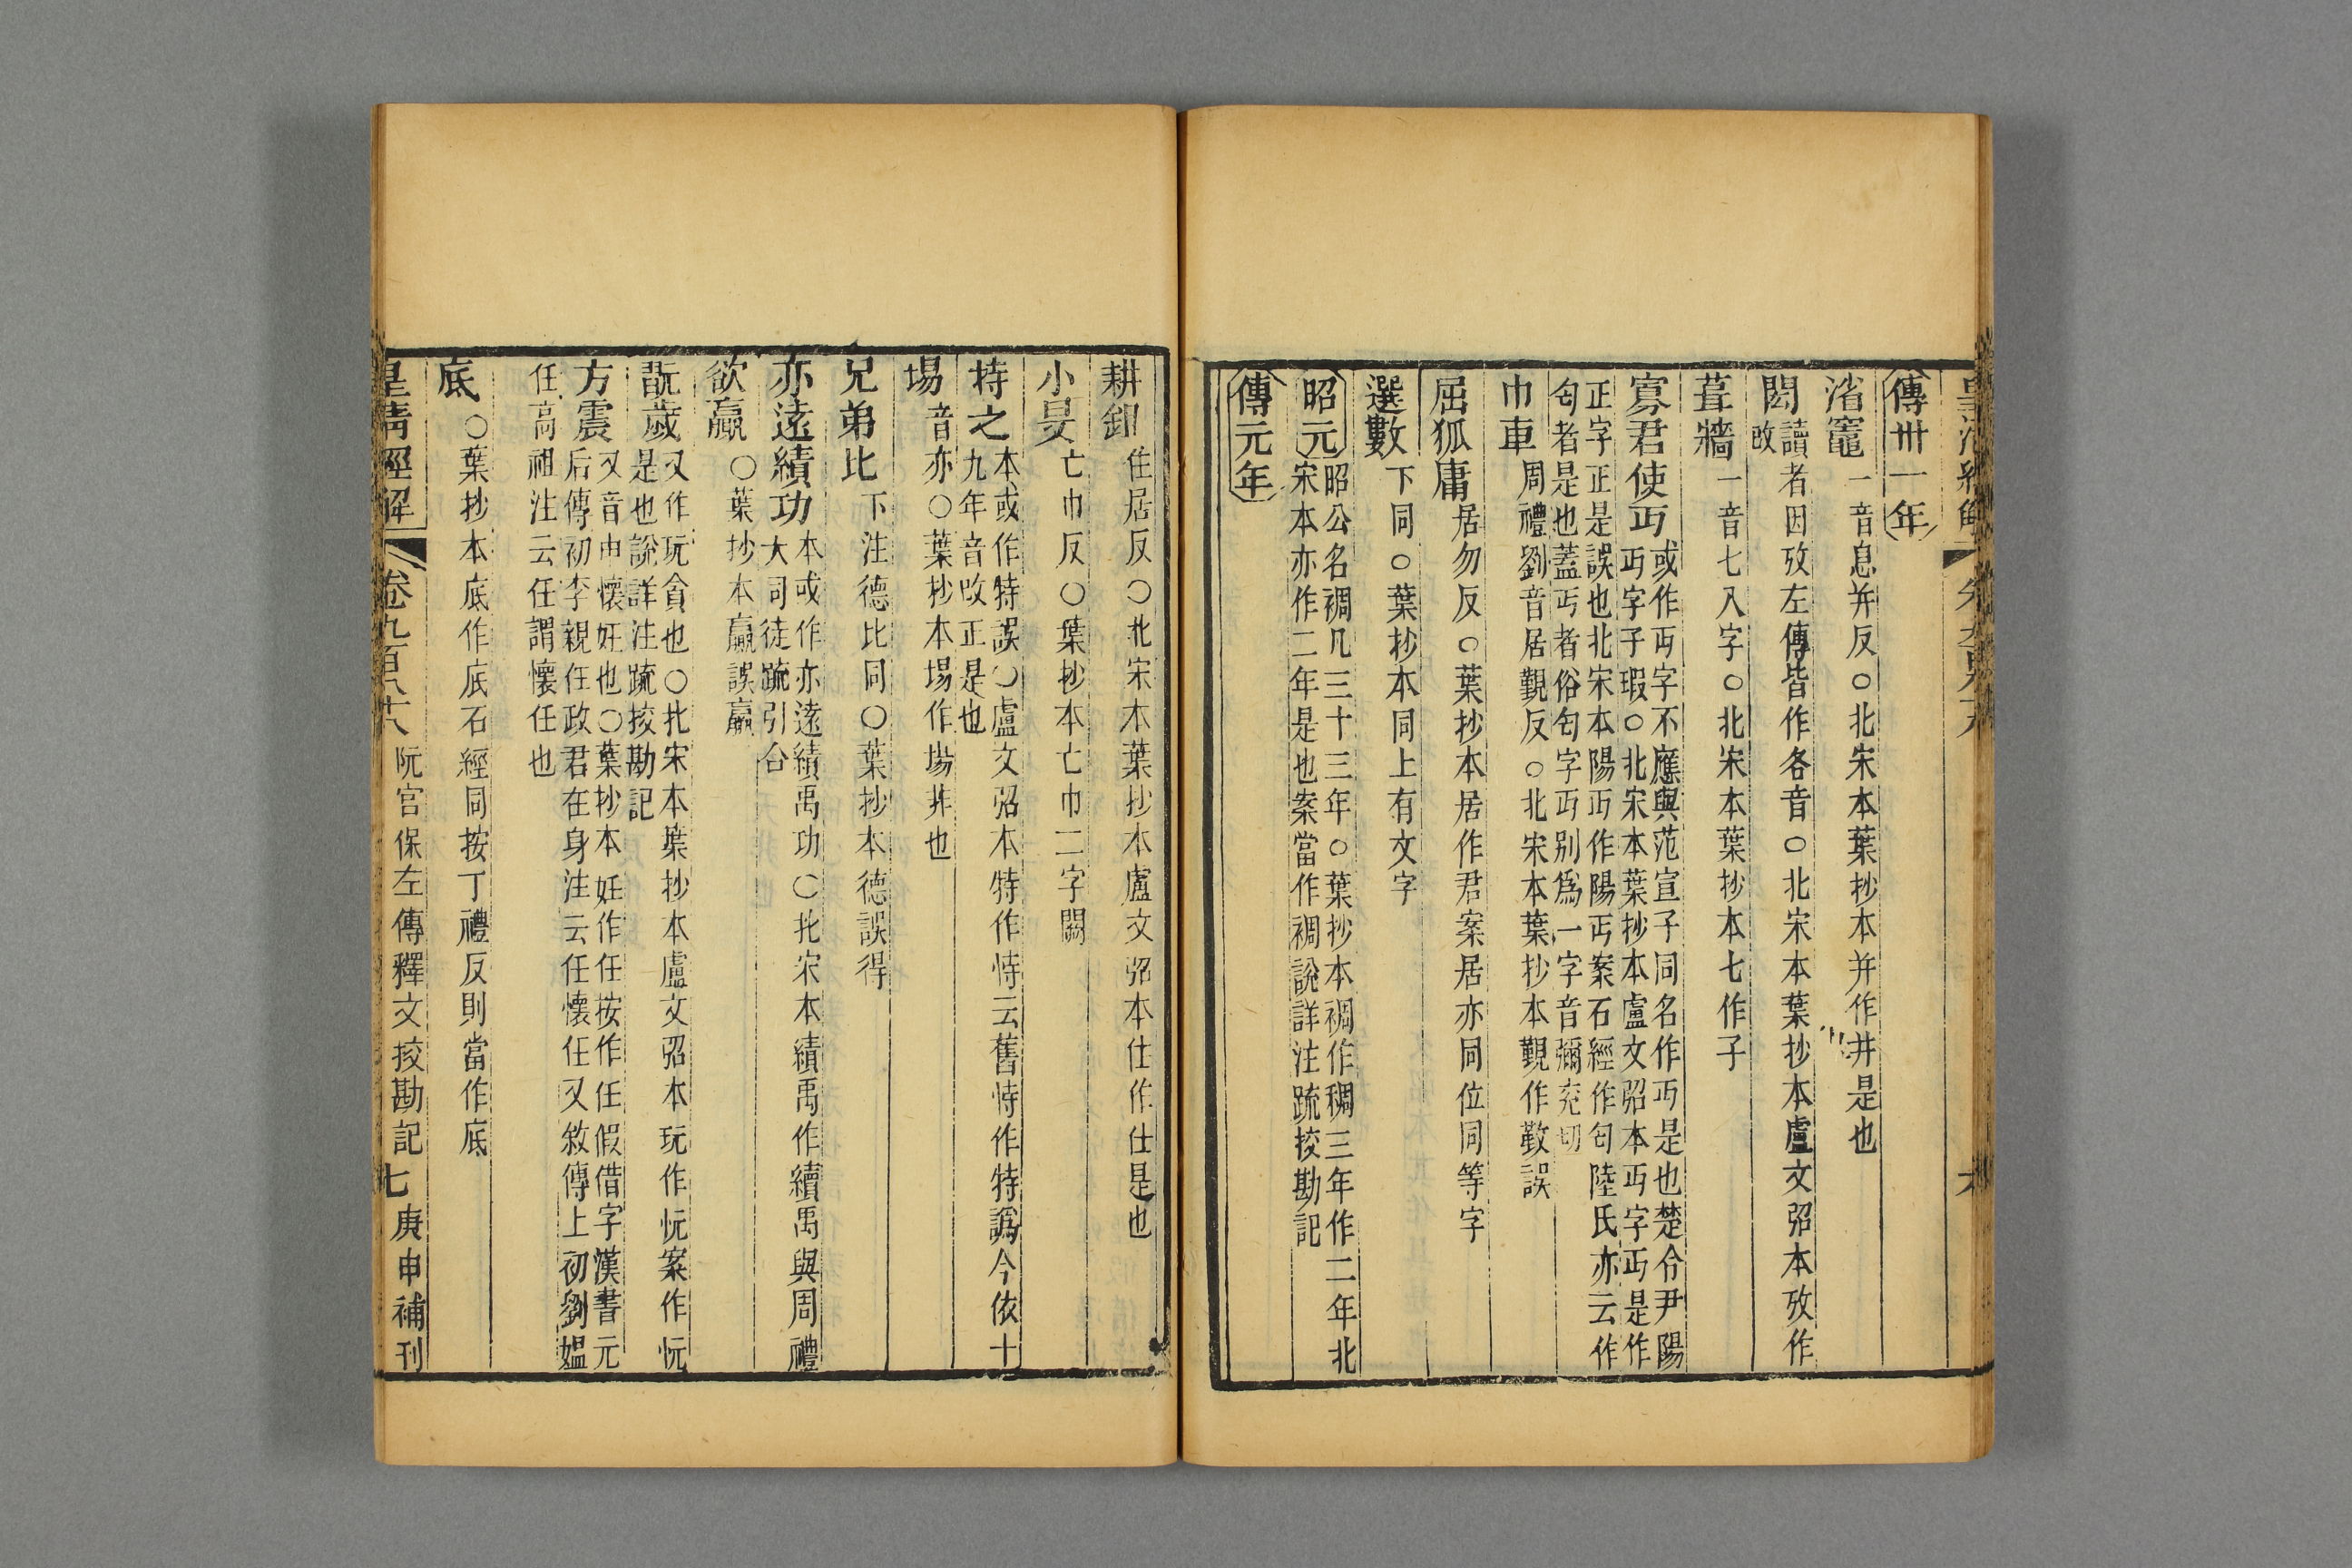 皇清經解
傳卅一年
渻竈一音息并反○北宋本葉抄本并作井是也
閎讀者因攷左傳皆作各音○北宋本葉抄本盧文弨本攷作
改
葺牆一音七入字○北宋本葉抄本七作子
寡君使丏或作丏字不應與范宣子同名作丏是也楚令尹陽
丏字子瑕○北宋本葉抄本盧文弨本丏字丏是作
正字正是誤也北宋本陽丏作陽丐案石經作匄陸氏亦云作
匄者是也蓋丐者俗匄字丏别爲一字音彌充切
巾車周禮劉音居覲反○北宋本葉抄本覲作覣誤
屈狐庸居勿反○葉抄本居作君案居亦同位同等字
選數下同○葉抄本同上有文字
昭元昭公名裯凡三十三年○葉抄本裯作稠三年作二年北
宋本亦作二年是也案當作裯說詳注疏挍勘記
傳元年
耕鉏仕居反○北宋本葉抄本盧文弨本仕作仕是也
小旻亡巾反○葉抄本亡巾二字闕
持之本或作特誤○盧文弨本特作恃云舊恃作特譌今依十
九年音改正是也
場音亦○葉抄本場作塲非也
兄弟比下注德比同○葉抄本德誤得
亦遠績功本或作亦遠績禹功○北宋本績禹作續禹與周禮
大司徒疏引合
欲贏○葉抄本贏誤嬴
翫歲又作玩貪也○北宋本葉抄本盧文弨本玩作忨案作忨
是也說詳注疏挍勘記
方震又音申懷妊也○葉抄本妊作任按作任假借字漢書元
后傳初李親任政君在身注云任懷任又敘傳上初劉媼
任高祖注云任謂懷任也
底○葉抄本底作厎石經同按丁禮反則當作底
皇清經解 卷九百四十八 阮宮保左傳釋文挍勘記 七 庚申補刊